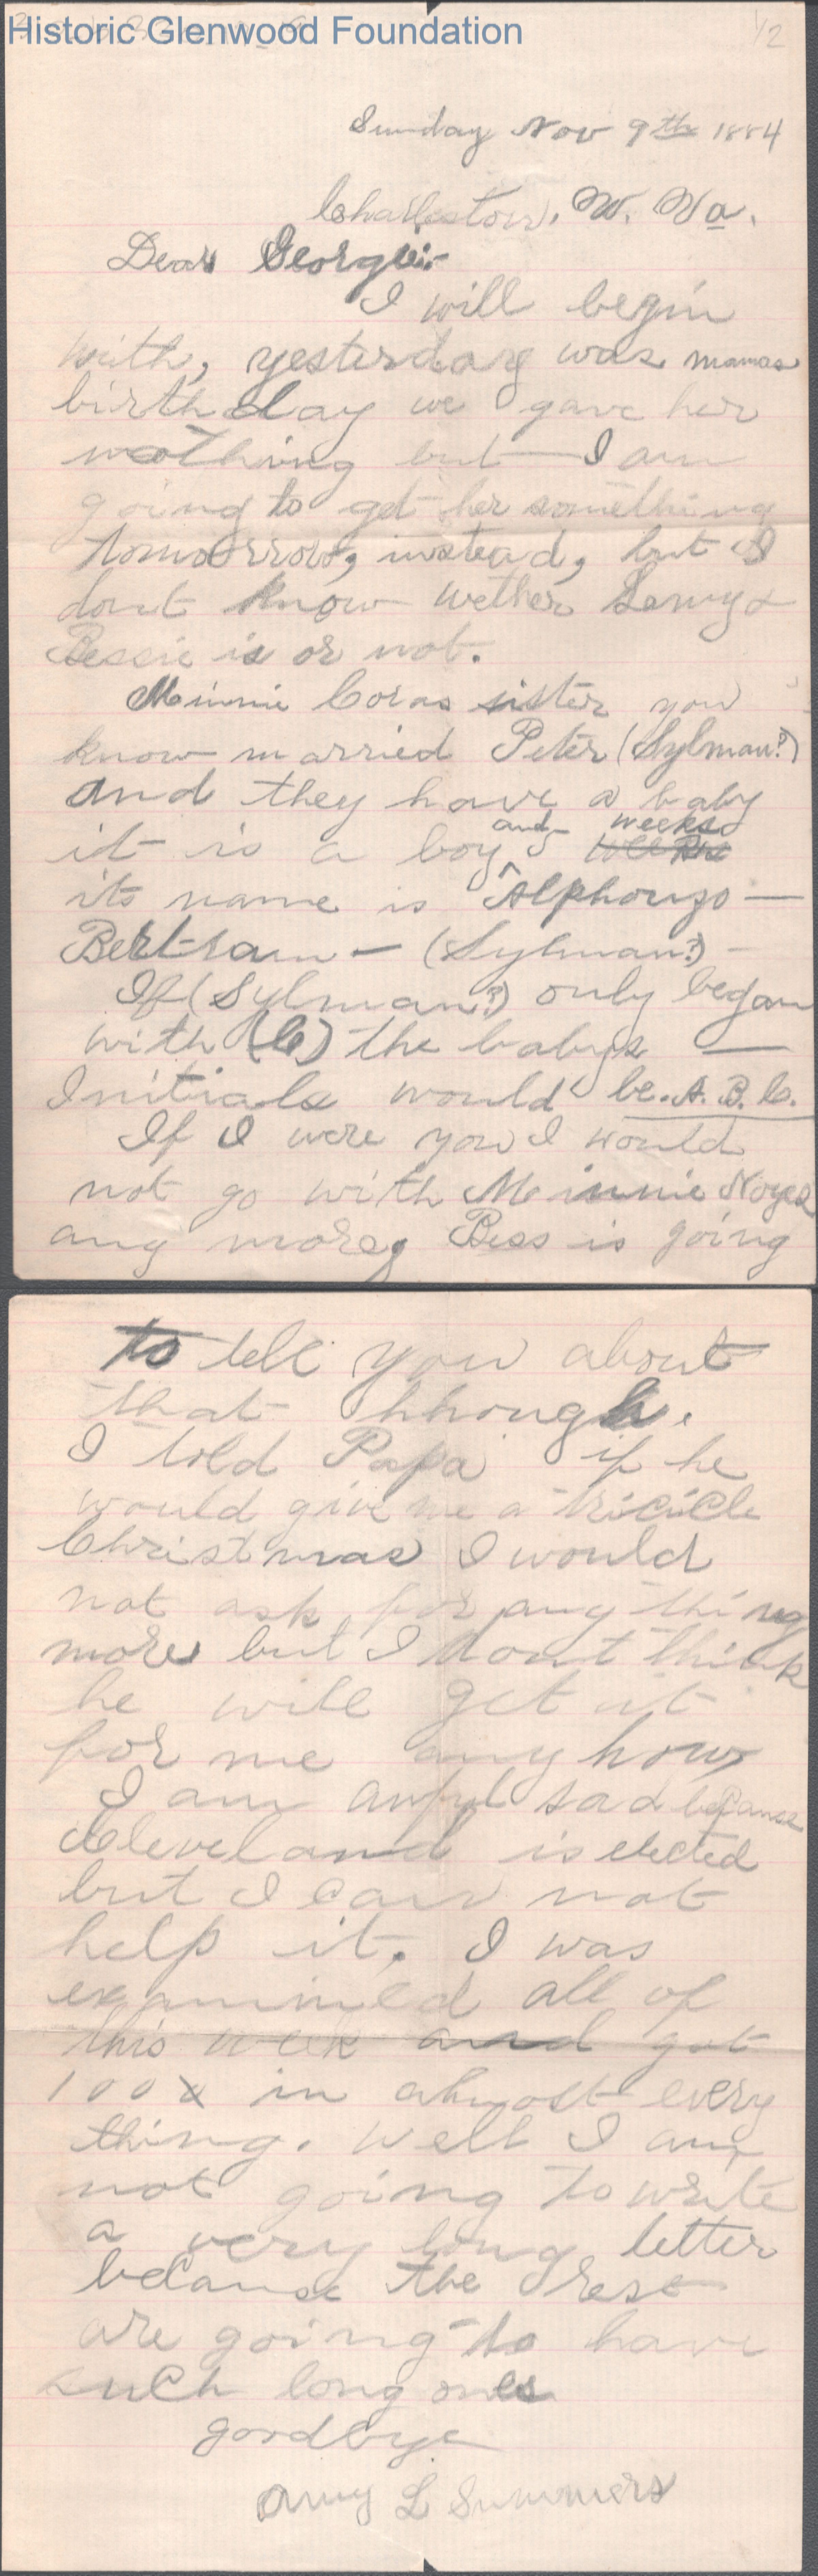 Historic Glenwood Foundation
1/2
Sunday Nov 9th 1884
Charlestown, W. Va.
Dear Georgie:-
I will begin
with, yesterday was mamas
birthday we gave her
nothing but I am
going to get her something
tomorrow, instead, but I
dont know wether Lewy &
Bessie is or not.
Minnie Coras sister you
know married Peter (Sylman?)
and they have a baby
it is a boy and 3 weeks
its name is Alphonzo —
Bertram — (Sylman?) —
If (Sylman?) only began
with (C) the babys —
Initials would be. A. B. C.
If I were you I would
not go with Minnie Noyes
any more, Bess is going
to tell you about
that hhough.
I told Papa if he
would give me a tricicle
Christmas I would
not ask for any thing
more but I dont think
he will get it
for me any how,
I am awful sad because
Cleveland is elected
but I can not
help it. I was
examined all of
this week and got
100 x in almost every
thing. Well I am
not going to write
a very long letter
because the rest
are going to have
such long ones
goodbye
Amy L Summers